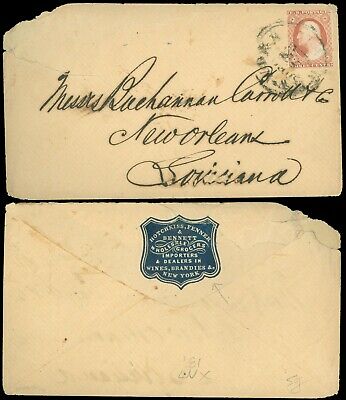 U.S. POSTAGE
THREE CENTS
Messrs Buchannan Carroll & Co
New Orleans
Louisiana
HOTCHKISS, FENNER
&
BENNETT
WHOLESALE GROCERS
IMPORTERS
& DEALERS IN
WINES, BRANDIES &c.
NEW YORK